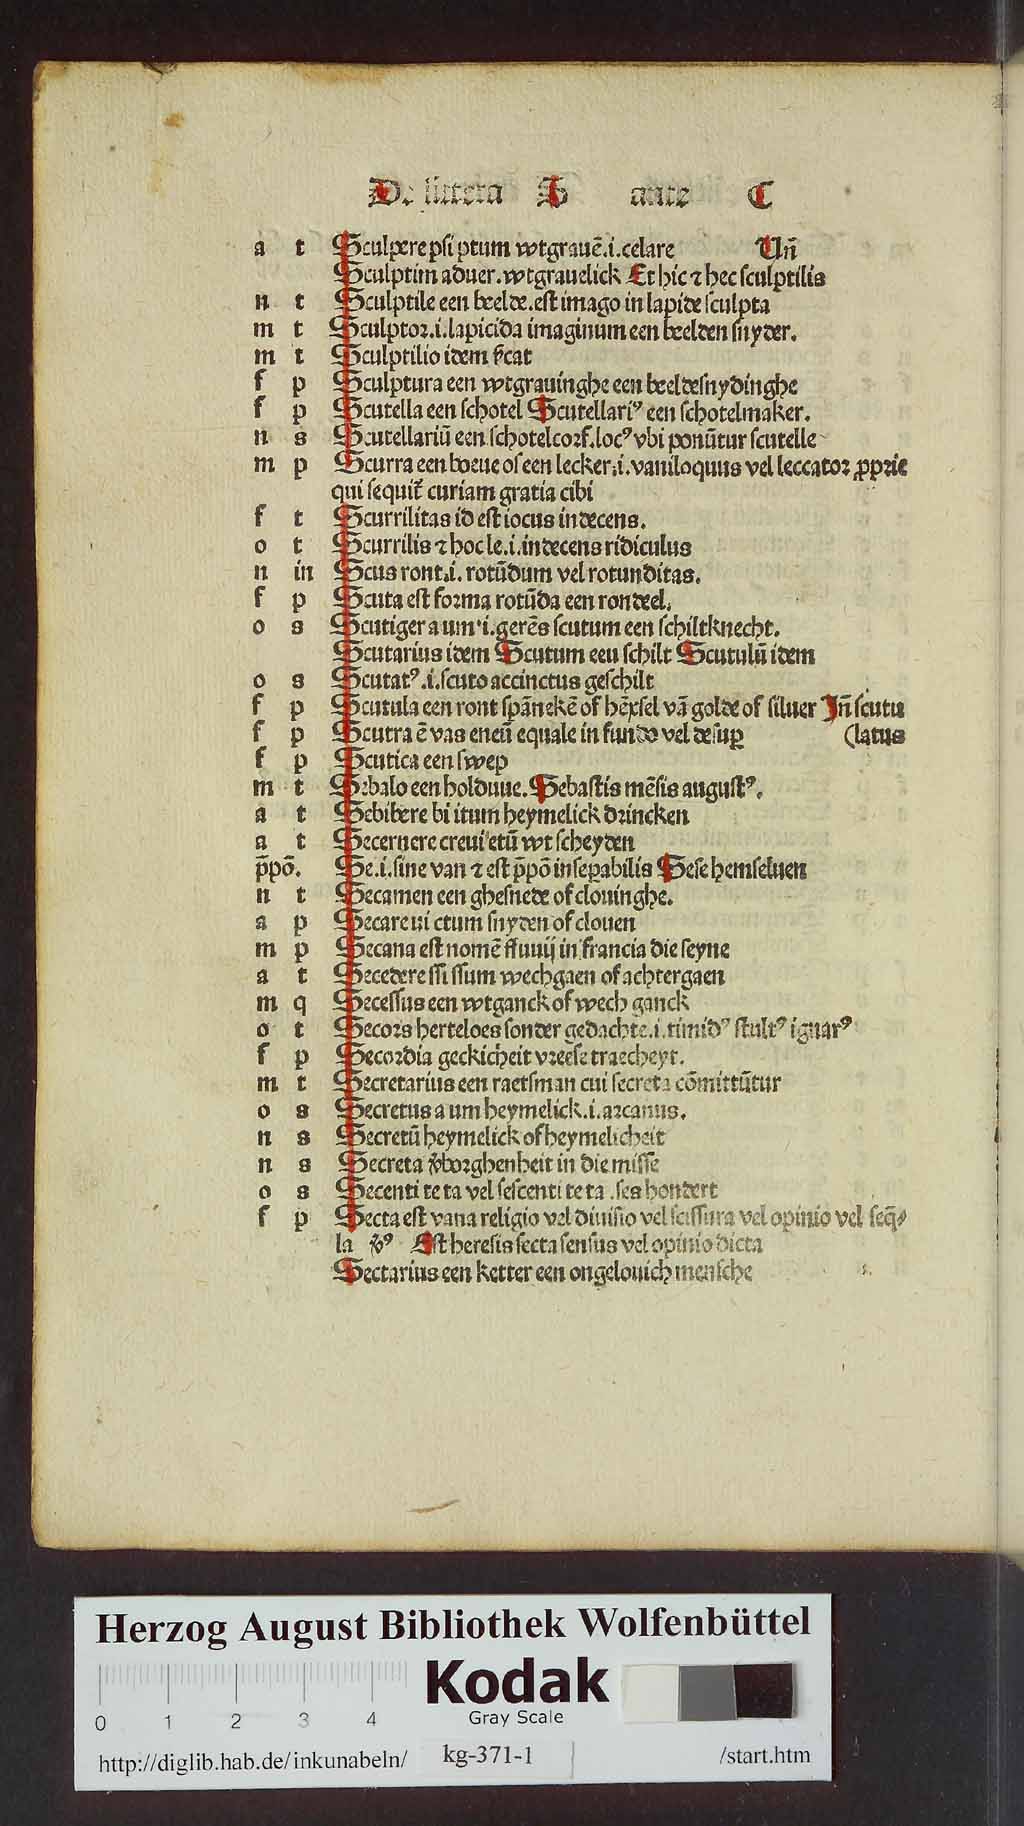 De littera S ante C
a t Sculpere psi ptum wtgrauē.i.celare Un̄
Sculptim aduer.wtgrauelick Et hic ⁊ hec sculptilis
n t Sculptile een beelde.est imago in lapide sculpta
m t Sculptor.i.lapicida imaginum een beelden snyder.
m t Sculptilio idem
f p Sculptura een wtgrauinghe een beeldesnydinghe
f p Scutella een schotel Scutellariꝰ een schotelmaker.
n s Scutellariū een schotelcorf.locꝰ vbi ponūtur scutelle
m p Scurra een boeue of een lecker.i.vaniloquus vel leccator ꝓprie
qui sequit᷑ curiam gratia cibi
f t Scurrilitas id est iocus indecens.
o t Scurrilis ⁊ hoc le.i.indecens ridiculus
n in Scus ront.i. rotūdum vel rotunditas.
f p Scuta est forma rotūda een rondeel.
o s Scutiger a um.i.gerēs scutum een schiltknecht.
Scutarius idem Scutum een schilt Scutulū idem
o s Scutatꝰ.i.scuto accinctus geschilt
f p Scutula een ront spānekē of of siluer In̄ scutu
f p Scutra ē vas eneū equale in fundo vel desuꝑ (latus
f p Scutica een swep
m t Sebalo een holduue. Sebastis mēsis augustꝰ.
a t Sebibere bi itum heymelick drincken
a t Secernere creui etū wt scheyden
p̄pō. Se.i.sine van ⁊ est p̄pō inseꝑabilis Sese hemseluen
n t Secamen een ghesnede of clouinghe.
a p Secare ui ctum snyden of clouen
m p Secana est nomē fluuij in francia die seyne
a t Secedere ssi ssum wechgaen of achtergaen
m q Secessus een wtganck of wech ganck
o t Secors herteloes sonder gedachte.i.timidꝰ stultꝰ ignarꝰ
f p Secordia geckicheit vreese traecheyt.
m t Secretarius een raetsman cui secreta cōmittūtur
o s Secretus a um heymelick.i.arcanus.
n s Secretū heymelick of heymelicheit
n s Secreta v̄borghenheit in die misse
o s Secenti te ta vel sescenti te ta .ses hondert
f p Secta est vana religio vel diuisio vel scissura vel opinio vel seq̄-
la v̄ꝰ Est heresis secta sensus vel opinio dicta
Sectarius een ketter een ongelouich mensche
Herzog August Bibliothek Wolfenbüttel
Kodak
Gray Scale
0 1 2 3 4
http://diglib.hab.de/inkunabeln/ kg-371-1 /start.htm